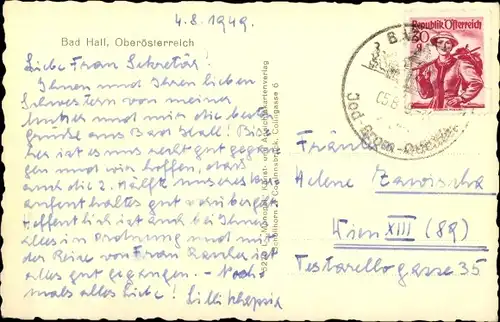 4.8.1949.
Bad Hall, Oberösterreich
Liebe Frau Sekretär!
Ihnen und Ihren lieben
Schwestern von meiner
Mutter und mir die besten
Grüße aus Bad Hall! Bis-
her ist es uns recht gut gegan-
gen und wir hoffen, dass
auch die 2. Hälfte unseres Kur-
aufenthaltes gut vorübergeht.
Hoffentlich ist auch bei Ihnen
alles in Ordnung und mit
der Reise von Frau
alles gut gegangen. - Noch-
mals alles Liebe!
Republik Österreich
BAD
Jod-Brom-Quellen
Fräulein
Helene Zawischa
Wien XIII (89)
Testarellogasse 35
Kunst- und Ansichtskartenverlag
Innsbruck, Colingasse 6